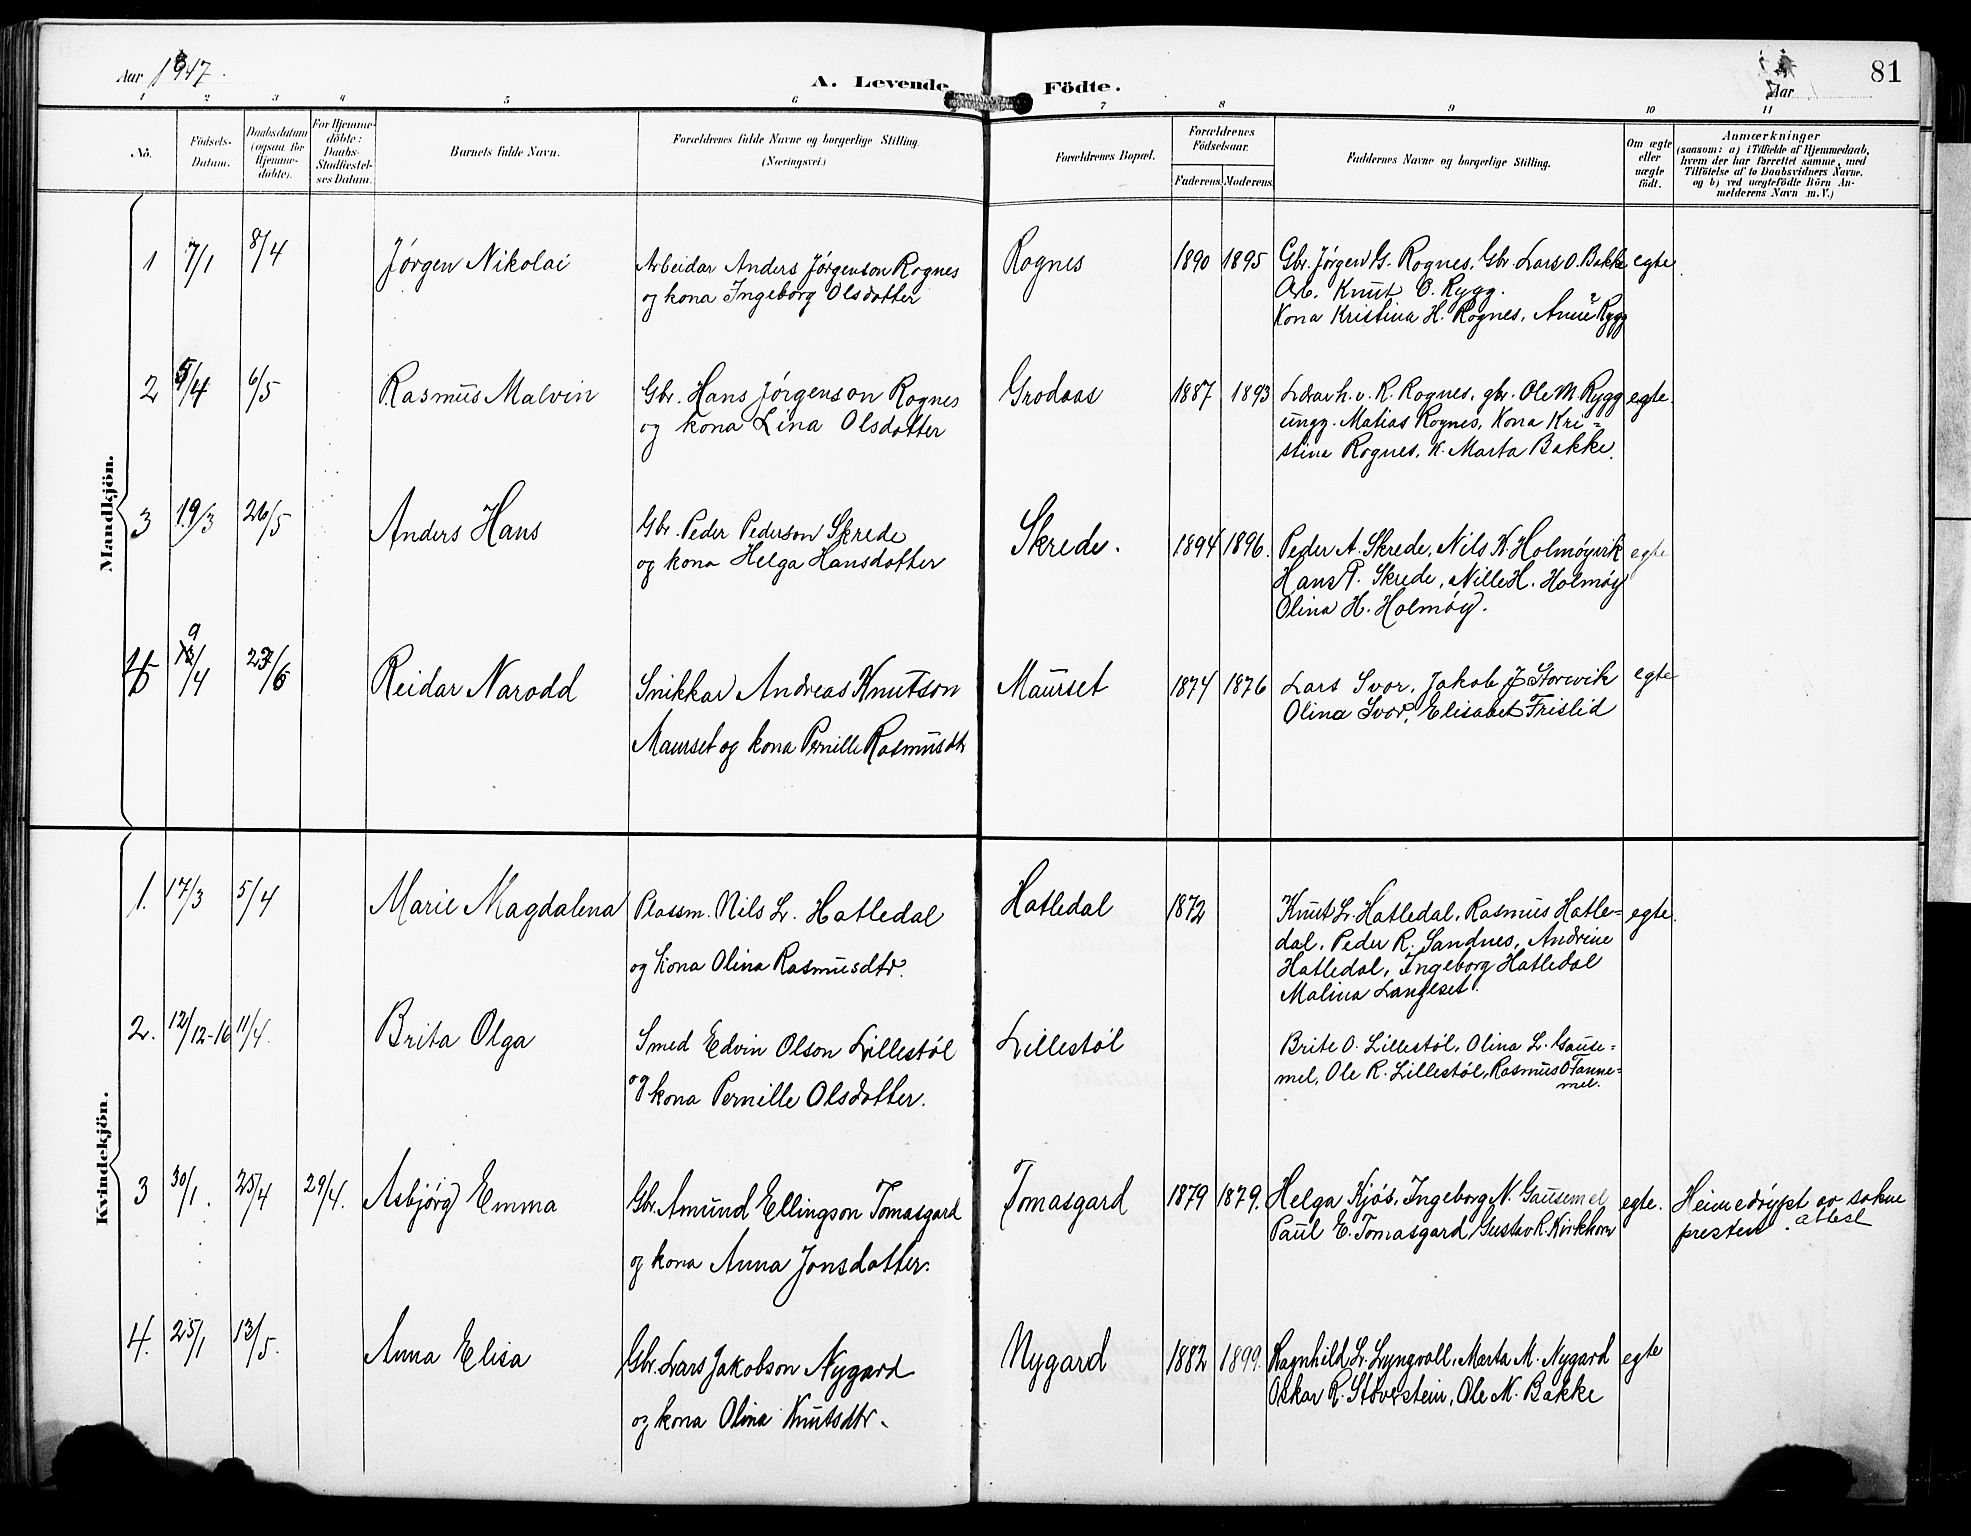 Aar 1947.
A. Levende Födte.
Aar
81
1 2 3 4 5 6 7 8 9 10 11
Nö.
Födsels-Datum.
Daabsdatum (ogsaa for Hjemme-döbte).
For Hjemme-döbte: Daabs-Stadfæstel-ses Datum.
Barnets fulde Navn.
Forældrenes fulde Navne og borgerlige Stilling. (Næringsvei)
Forældrenes Bopæl.
Forældrenes Födselsaar.
Faderens. Moderens.
Faddernes Navne og borgerlige Stilling.
Om ægte eller uægte födt.
Anmærkninger
(saasom: a) i Tilfælde af Hjemmedaab,
hvem der har forrettet samme, med
Tilföielse af to Daabsvidners Navne,
og b) ved uægtefödte Börn An-
melderens Navn m. V.)
Mandkjön.
1 7/1 8/4 Jørgen Nikolai Arbeidar Anders Jørgenson Rognes Rognes 1890 1895 Gbr. Jørgen G. Rognes, Gbr. Lars O. Bakke egte
og kona Ingeborg Olsdotter Arb. Knut O. Rygg.
Kona Kristina H. Rognes, Anne Rygg
2 5/4 6/5 Rasmus Malvin Gbr. Hans Jørgenson Rognes Grodaas 1887 1893 R. Rognes, gbr. Ole M. Rygg egte.
og kona Lina Olsdotter ungg. Matias Rognes, Kona Kri=
stina Rognes, K. Marta Bakke.
3 19/3 26/5 Anders Hans Gbr. Peder Pederson Skrede Skrede. 1894 1896. Peder A. Skrede, Nils K. Holmøyvik egte
og kona Helga Hansdotter Hans P. Skrede, Nille H. Holmøy
Olina H. Holmøy.
9/4 Reidar Narodd Snikkar Andreas Knutson Maurset 1874 1876 Lars Svor, Jakob J Storevik egte
Maurset og kona Pernille Rasmusdtr Olina Svor, Elisabet Frislid
Kvindekjön.
1. 17/3 5/4 Marie Magdalena Plassm. Nils L. Hatledal Hatledal 1872 Knut L. Hatledal, Rasmus Hatle= egte.
og kona Olina Rasmusdtr. dal, Peder R. Sandnes, Andrine
Hatledal, Ingeborg Hatledal
Malina Langeset.
2. 12/12-16 11/4. Brita Olga Smed Edvin Olson Lillestøl Lillestøl Brite O. Lillestøl, Olina L. Gause=
og kona Pernille Olsdotter. mel, Ole R. Lillestøl, Rasmus O Tanne=
mel.
3 30/1. 25/4 29/4. Asbjørg Emma Gbr. Amund Ellingson Tomasgard Tomasgard 1879 1879. Helga Kjøs, Ingeborg N. Gausemel egte. Heimedøypt av sokne
og kona Anna Jonsdotter. Paul E. Tomasgard, Gustav R. Kirkhorn presten. attest
4. 25/1 13/5. Anna Elisa Gbr. Lars Jakobson Nygard Nygard 1882 1899. Ragnhild L. Lyngvoll, Marta M. Nygard egte
og kona Olina Knutsdtr. Oskar R. Stoverstein, Ole M. Bakke